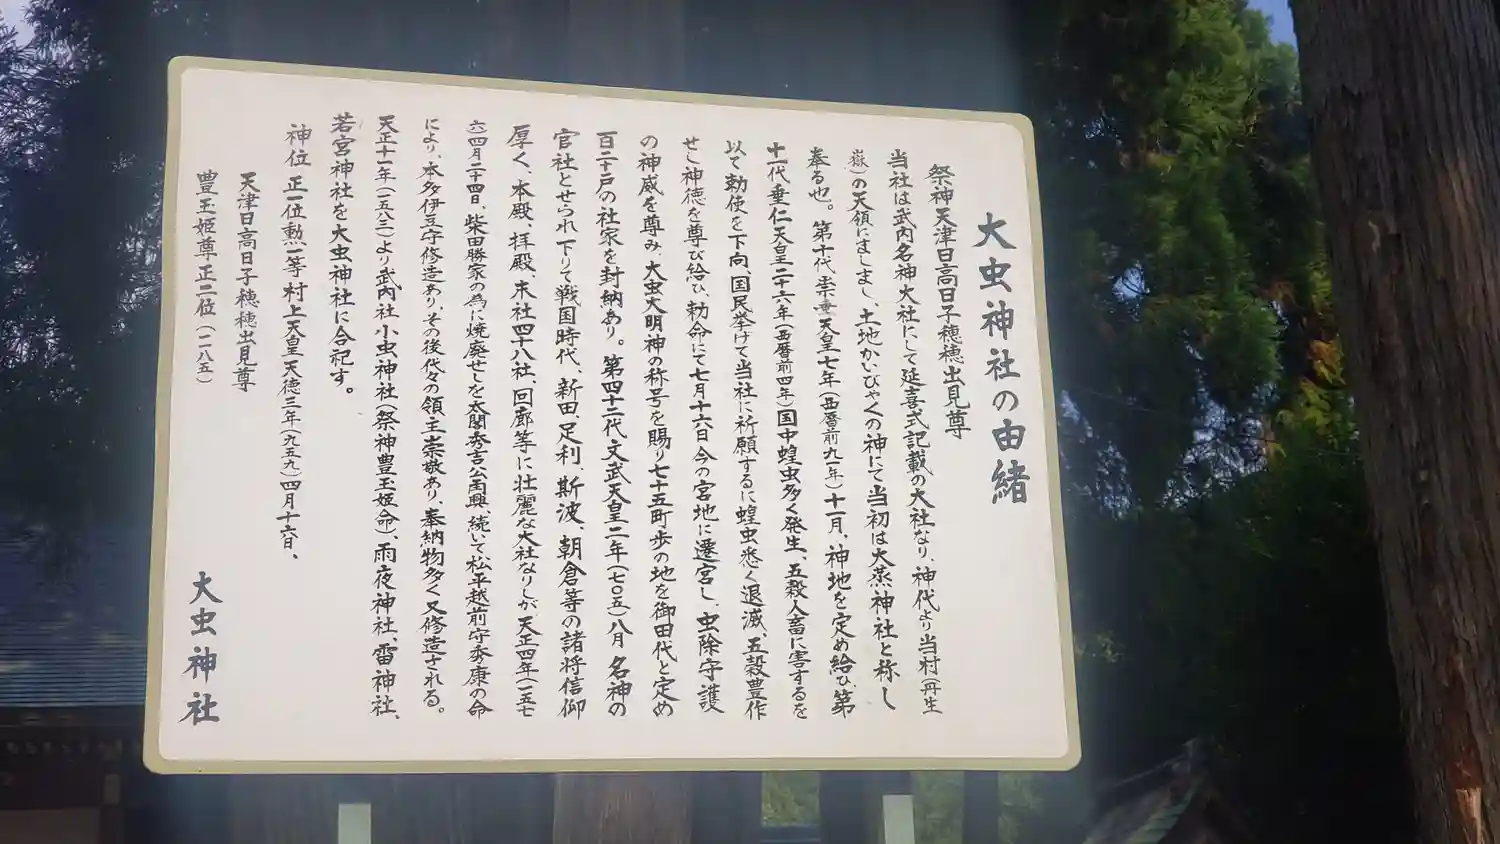 大虫神社の由緒
祭神天津日高日子穂穂出見尊
当社は式内名神大社にして延喜式記載の大社なり、神代より当村(丹生
嶽)の天領にましまし、土地かいびゃくの神にて当初は大蒸神社と称し
奉る也。第十代崇神天皇七年(西暦前九一年)十一月、神地を定め給ひ第
十一代垂仁天皇二十六年(西暦前四年)国中蝗虫多く発生、五穀人畜に害するを
以て勅使を下向、国民挙げて当社に祈願するに蝗虫悉く退滅、五穀豊作
せし神徳を尊び給ひ、勅命にて七月十六日今の宮地に遷宮し、虫除守護
の神威を尊み、大虫大明神の称号を賜り七十五町歩の地を御田代と定め
百二十戸の社家を封納あり。第四十二代文武天皇二年(七〇五)八月名神の
官社とせられ下りて戦国時代、新田、足利、斯波、朝倉等の諸将信仰
厚く、本殿、拝殿、末社四十八社、回廊等に壮麗な大社なりしが天正四年(一五七
六)四月二十四日、柴田勝家の為に焼廃せしを太閤秀吉公再興、続いて松平越前守秀康の命
により、本多伊豆守修造あり、その後代々の領主崇敬あり、奉納物多く又修造される。
天正十一年(一五八三)より式内社小虫神社(祭神豊玉姫命)、雨夜神社、雷神社、
若宮神社を大虫神社に合祀す。
神位 正一位勲一等村上天皇天徳三年(九五九)四月十六日、
天津日高日子穂穂出見尊
豊玉姫尊正二位(一二八五)
大虫神社